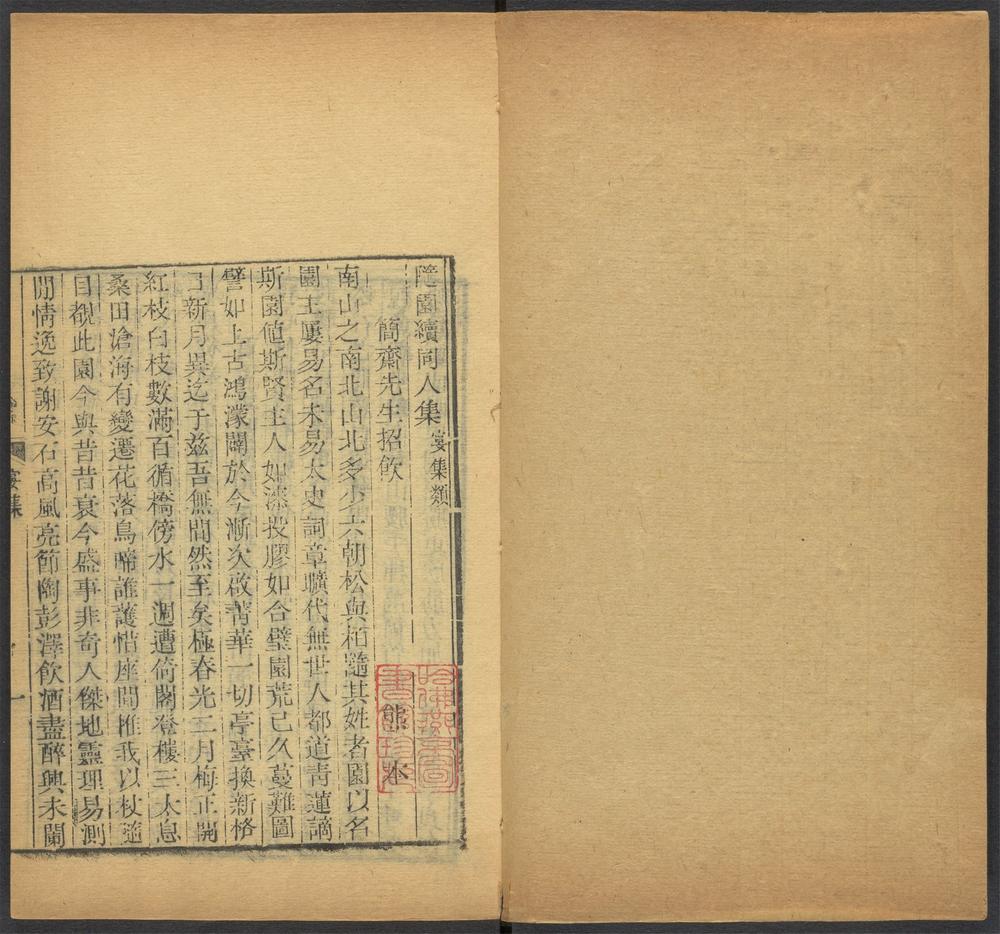 隨園續同人集 宴集類
簡齋先生招飲 熊本
南山之南北山北多少六朝松與柏隨其姓者園以名
園主屢易名未易太史詞章曠代無世人都道靑蓮謫
斯園値斯賢主人如漆投膠如合璧園荒已久蔓難圖
譬如上古鴻濛闢於今漸次啟菁華一切亭臺換新格
日新月異迄于兹吾無間然至矣極春光二月梅正開
紅枝白枝數滿百循橋傍水一週遭倚閣登樓三太息
桑田滄海有變遷花落鳥啼誰護惜座間惟我以杖隨
目覩此園今與昔昔衰今盛事非奇人傑地靈理易測
閒情逸致謝安石高風亮節陶彭澤飲酒盡醉興未闌
宴集
一
哈佛燕京圖書館珍藏